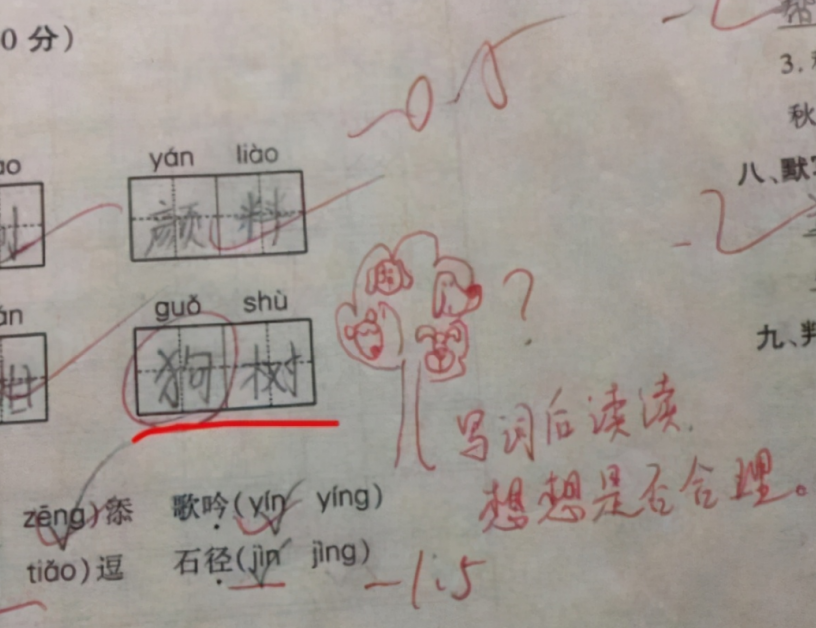 0 分)
yán liào
颜料
guǒ shù
狗树
?
写词后读读,
想想是否合理。
zēng)添 歌吟(yín yíng)
tiǎo)逗 石径(jìn jìng)
-1.5
3.
秋
八、默
九、判